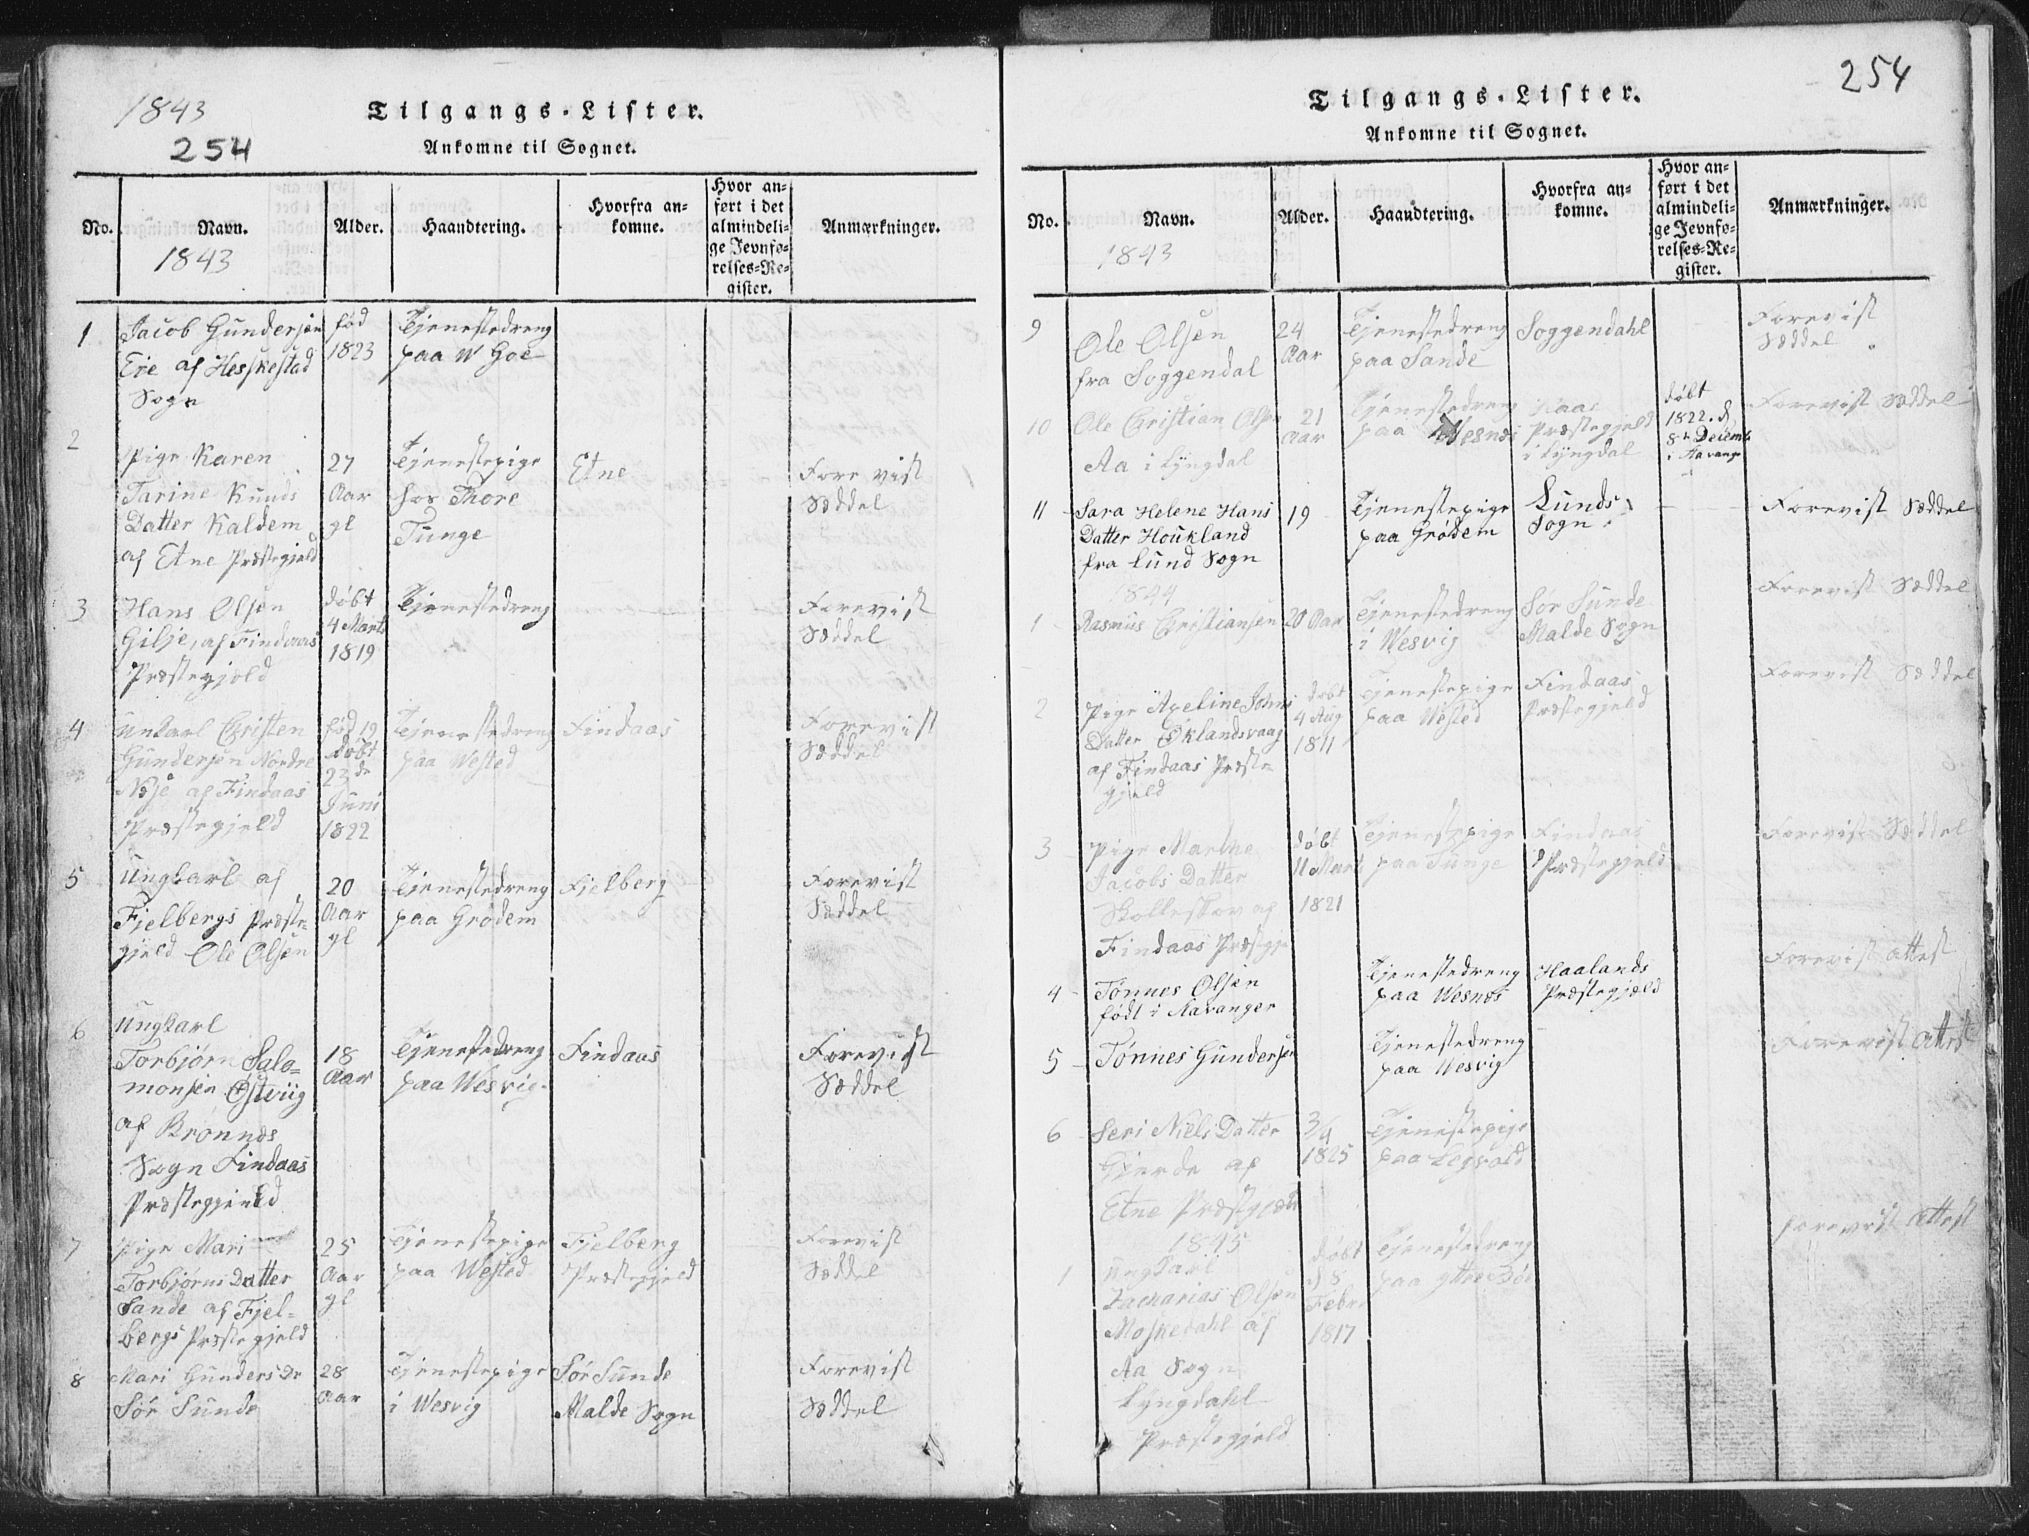 1843
254
Tilgangs-Lister.
Ankomne til Sognet.
No.
Navn.
1843
Alder.
Haandtering.
Hvorfra an-
komne.
Hvor an-
ført i det
almindeli-
ge Jevnfø-
relses-Re-
gister.
Anmærkninger.
1
Jacob Gundersen
Eie af Heskestad
Sogn
fød
1823
Tjenestedreng
paa W Goe
2
Pige Karen
Tarine Knuds
Datter Kaldem
af Etne Præstegjeld
27
Aar
gl
Tjenestepige
hos Thore
Tunge
Etne
Forevist
Sæddel
3
Hans Olsen
Gilje, af Findaas
Præstegjeld
døbt
4 Marts
1819
Tjenestedreng
Forevist
Sæddel
4
Unkarl Christen
Gundersen Nordre
Næje af Findaas
Præstegjeld
fød 19
døbt
23de
Juni
1822
Tjenestedreng
paa Wested
Findaas
Forevist
Sæddel
5
Ungkarl af
Fjelbergs Præste-
gjeld Ole Olsen
20
Aar
gl
Tjenestedreng
paa Grødem
Fjelberg
Forevist
Sæddel
6
Ungkarl
Torbjørn Salo-
monsen Østviig
af Brønnøs
Sogn Findaas
Præstegjeld
18
Aar
Tjenestedreng
paa Wesvig
Findaas
Forevist
Sæddel
7
Pige Mari
Torbjørns Datter
Sande af Fjel-
bergs Præstegjeld
25
Aar
gl
Tjenestepige
paa Wested
Fjelberg
Præstegjeld
Forevist
Sæddel
8
Mari Gunders Dr
Sør Sunde
28
Aar
Tjenestepige
i Wesvig
Sør Sunde
Malde Sogn
Forevist
Sæddel
254
Tilgangs-Lister.
Ankomne til Sognet.
No.
Navn.
1843
Alder.
Haandtering.
Hvorfra an-
komne.
Hvor an-
ført i det
almindeli-
ge Jevnfø-
relses-Re-
gister.
Anmærkninger.
9
Ole Olsen
fra Soggendal
24
Aar
Tjenestedreng
paa Sande
Soggendahl
Forevist
Sæddel
10
Ole Christian Olsen
Aa i Lyngdal
21
Aar
Tjenestedreng
paa Wesnes
Præstegjeld
i Lyngdal
døbt
1822. d.
8de Decemb
i Havange
Forevist Sæddel
11
Sara Helene Hans
Datter Houkland
fra Lund Sogn
19
Tjenestepige
paa Grødem
Lunds
Sogn
Forevist Sæddel
1844
1
Rasmus Christiansen
20 Aar
Tjenestedreng
i Wesvig
Sør Sunde
Malde Sogn
Forevist Sæddel
2
Pige Axeline Johns
Datter Øklandsvaag
af Findaas Præste-
gjeld
døbt
4 Aug
1811
Tjenestepige
paa Wested
Findaas
Præstegjeld
Forevist Sæddel
3
Pige Marthe
Jacobs Datter
Skolleskov af
Findaas Præstegje
døbt
11 Marts
1821
Tjenestepige
paa Tunge
Findaas
Præstegjeld
Forevist Sæddel
4
Tønnes Olsen
født i Havanger
Tjenestedreng
paa Wesnes
Haalands
Præstegjæld
Forevist attest
5
Tønnes Gundersen
Tjenestedreng
paa Wesvig
Forevist attest
6
Seri Niels Datter
Gjerde af
Etne Præstgjæld
3/4
1825
Tjenestepige
paa Legvold
forevist attest
1845
1
Ungkarl
Zacharias Olsen
Moskedahl af
Aa Sogn
Lyngdahl
Præstegjeld
døbt
d 8
Febru
1817
Tjenestedreng
paa yttre Bøe